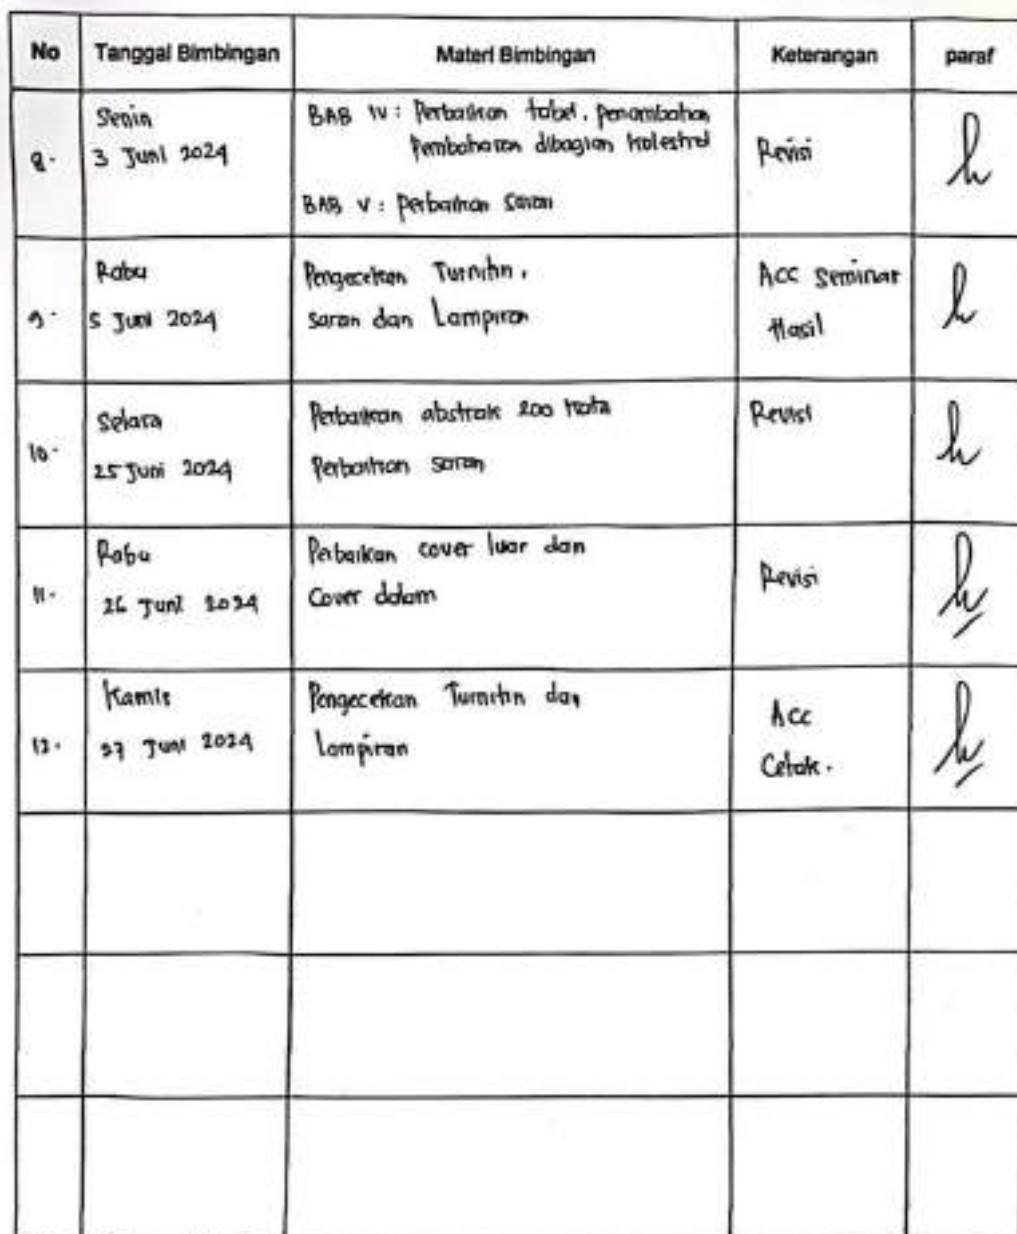 No Tanggal Bimbingan Materi Bimbingan Keterangan paraf
8. Senin
3 Juni 2024
BAB IV : Perbaikan tabel, penambahan
Pembahasan dibagian kolestrol
BAB V : Perbaikan saran
Revisi
9. Rabu
5 Juni 2024
Pengecekan Turnitin,
saran dan Lampiran
Acc Seminar
Hasil
10. Selasa
25 Juni 2024
Perbaikan abstrak 200 kata
Perbaikan saran
Revisi
11. Rabu
26 Juni 2024
Perbaikan cover luar dan
Cover dalam
Revisi
12. Kamis
27 Juni 2024
Pengecekan Turnitin dan
Lampiran
Acc
Cetak.